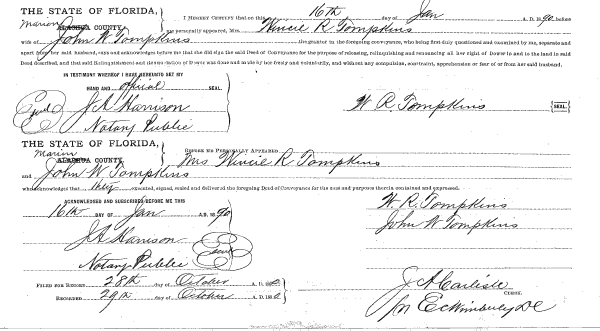 THE STATE OF FLORIDA,
Marion
ALACHUA COUNTY.
I HEREBY CERTIFY that on this 16th day of Jan A. D. 1890 before
me personally appeared, Mrs. Wincie R Tompkins
wife of John W Tompkins the grantor in the foregoing conveyance, who being first duly questioned and examined by me, separate and
apart from her said husband, did acknowledge before me that she did sign the said Deed of Conveyance for the purpose of releasing, relinquishing and renouncing all her right of Dower in and to the land in said
Deed described, and that said Relinquishment and Renunciation of Dower was done and made by her freely and voluntarily, and without any compulsion, constraint, apprehension or fear of or from her said husband.
IN TESTIMONY WHEREOF I HAVE HEREUNTO SET MY
HAND AND official SEAL.
Seal J. A. Harrison
Notary Public
W R. Tompkins SEAL.
THE STATE OF FLORIDA,
Marion
ALACHUA COUNTY.
BEFORE ME PERSONALLY APPEARED Mrs Wincie R Tompkins
and John W Tompkins
who acknowledged that they executed, signed, sealed and delivered the foregoing Deed of Conveyance for the uses and purposes therein contained and expressed.
ACKNOWLEDGED AND SUBSCRIBED BEFORE ME THIS
16th DAY OF Jan A. D. 1890
J A Harrison
Notary Public Seal
W. R. Tompkins
John W Tompkins
FILED FOR RECORD 28th day of October A. D. 1890
RECORDED 29th day of October A. D. 1890
J A Carlisle
CLERK.
pr E C Wimberly D C